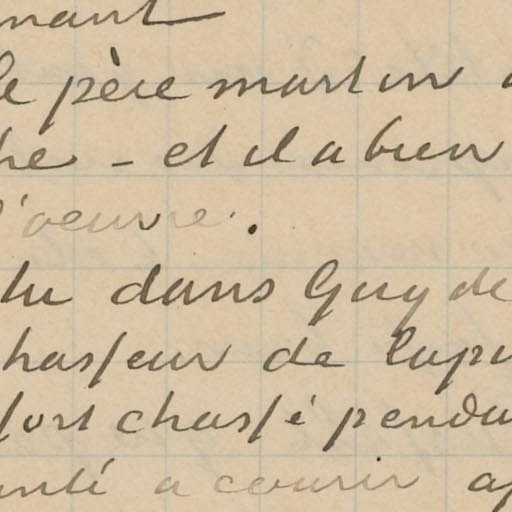 nant
le père martin
he - et il a bien
l'oeuvre.
lu dans Guy de
hasseur de lapi
fort chassé penda
anté a courir ap